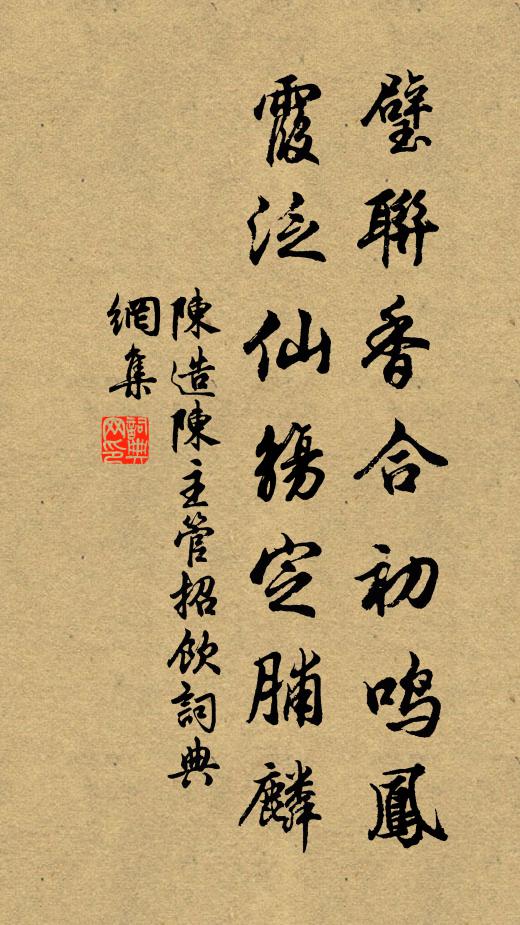 璧聯香合初鳴鳳
霞泛仙觴定脯麟
陳造陳主管招飲詞典
網集
詞典網印